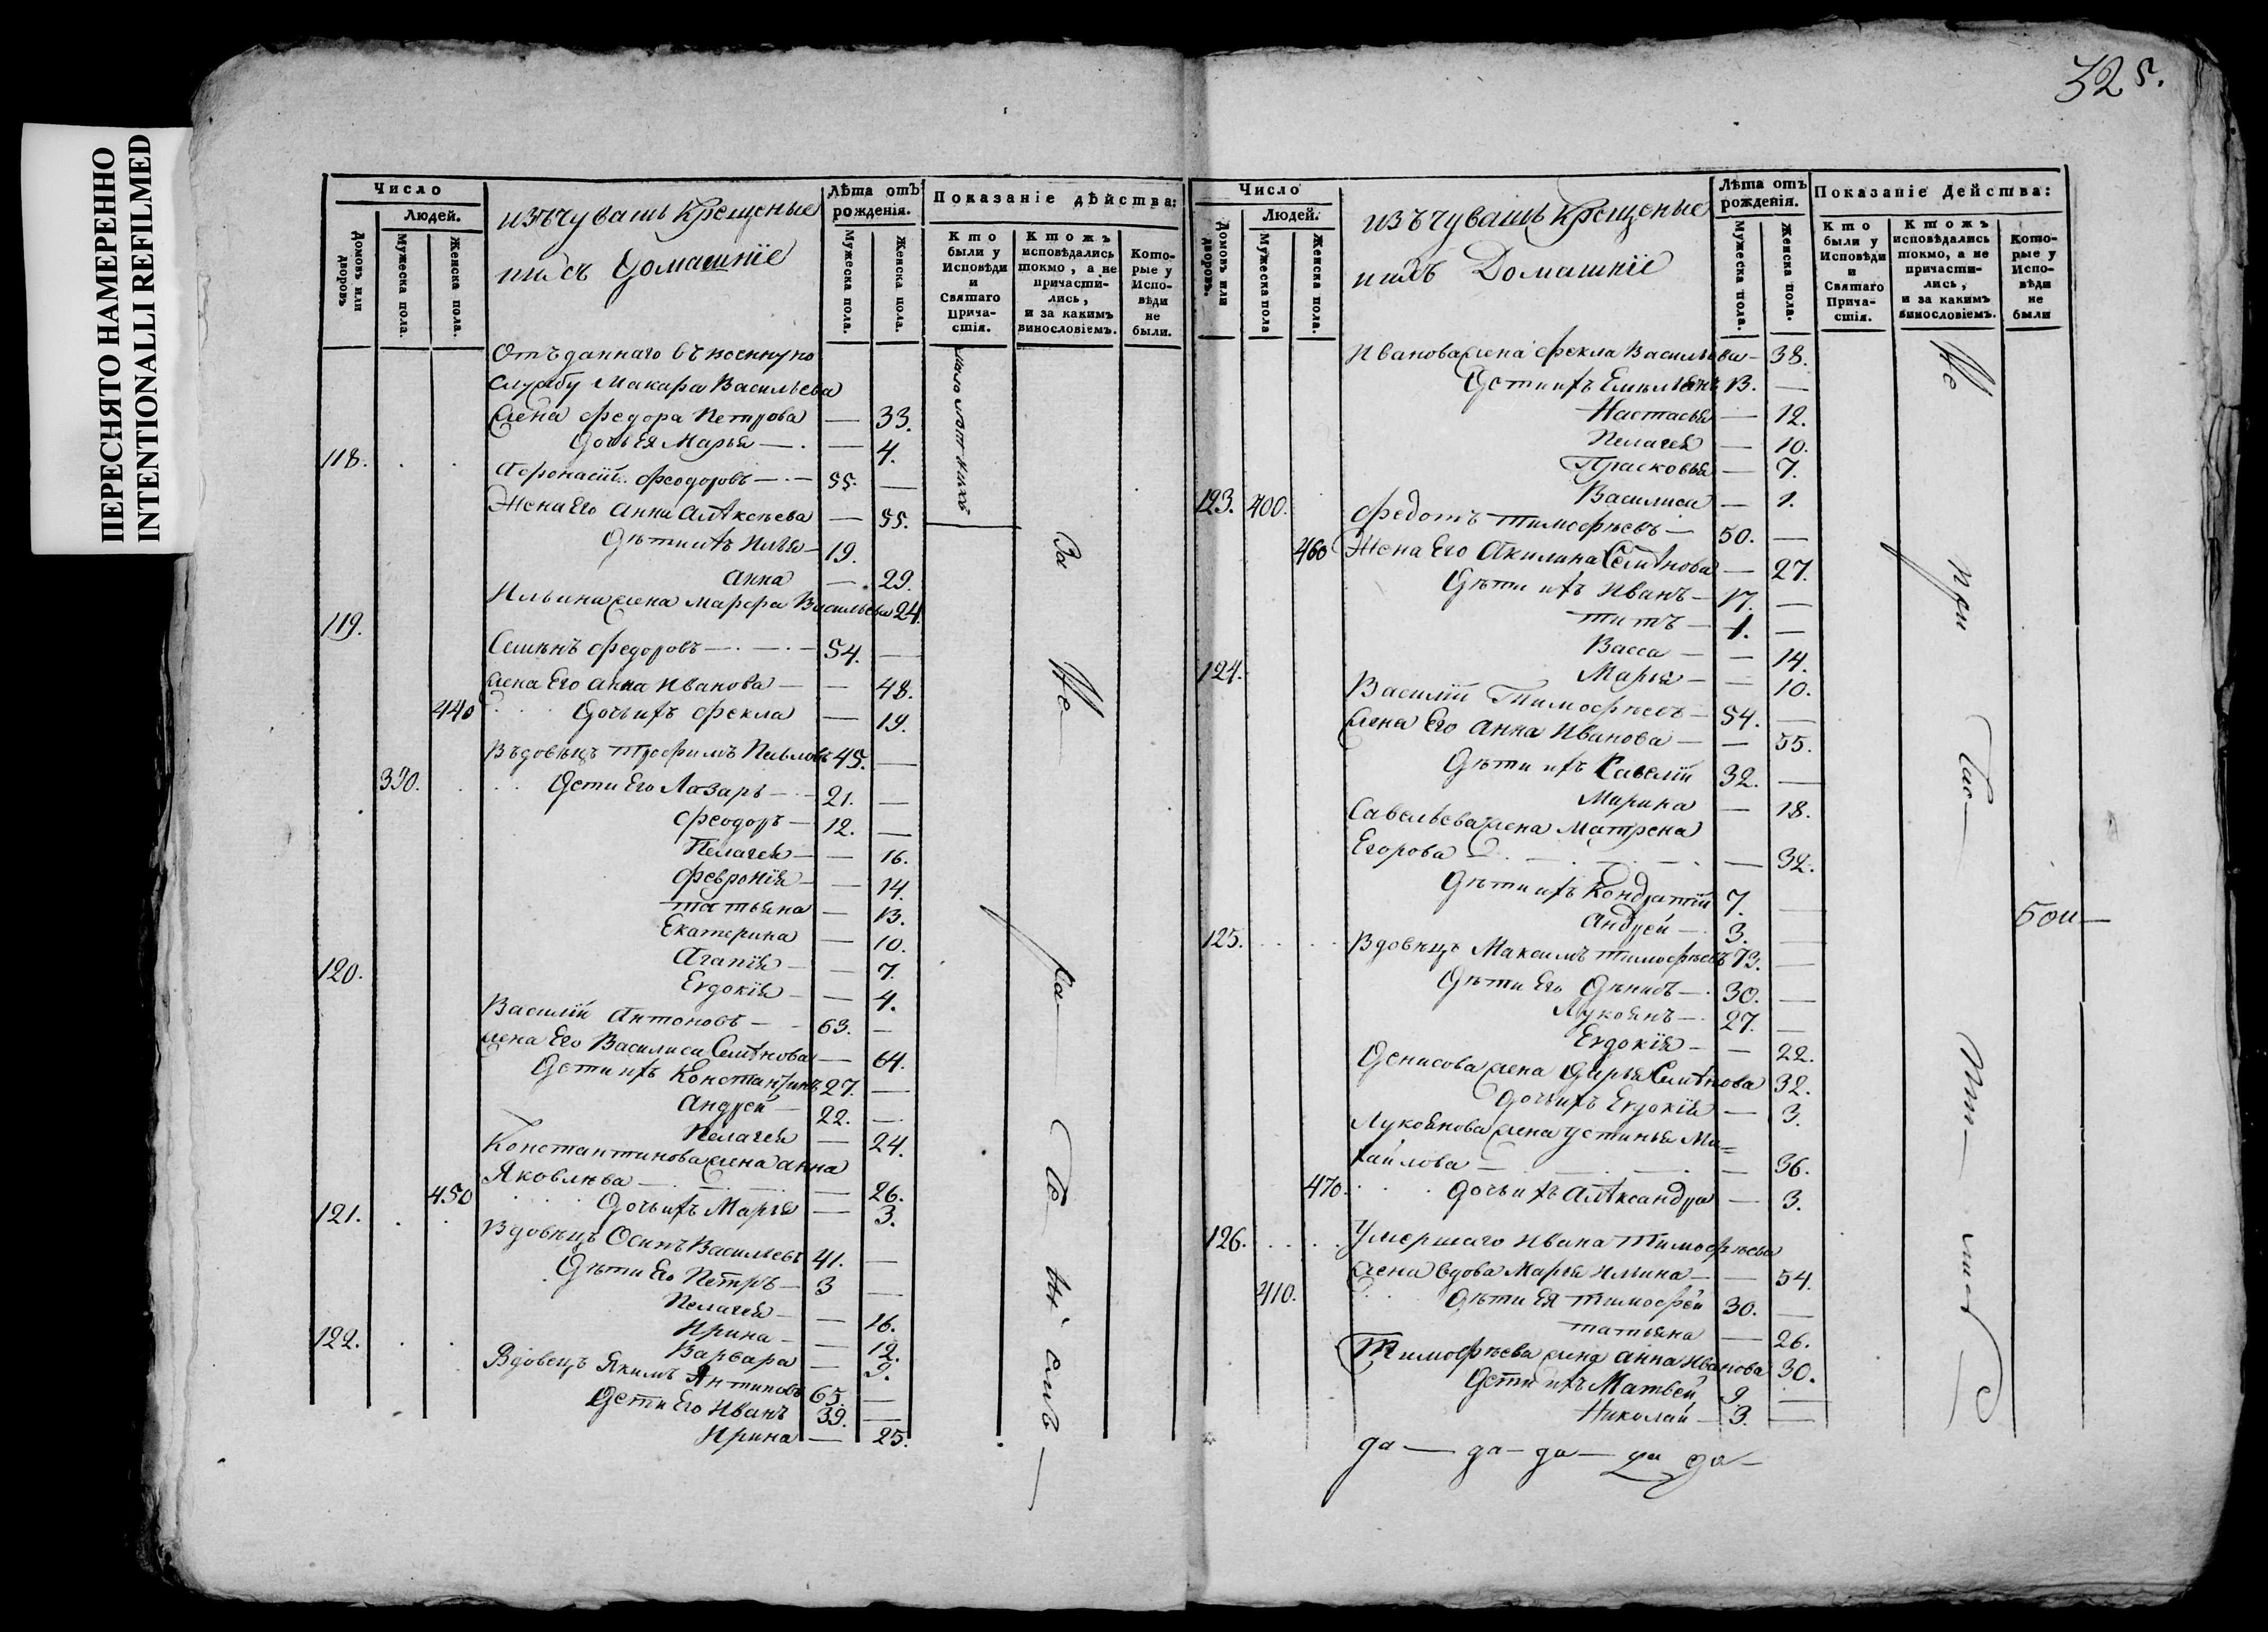 325.
ПЕРЕСНЯТО НАМЕРЕННО
INTENTIONALLI REFILMED
Число
Людей.
Домовъ или дворовъ
Мужеска пола.
Женска пола.
изъ чувашъ Крещеные
и ихъ Домашніе
Лѣта отъ рожденія.
Мужеска пола.
Женска пола.
Показаніе дѣйства:
Кто были у Исповѣди и Святаго Причастія.
Ктожъ исповѣдались токмо, а не причастились, и за какимъ винословіемъ.
Которые у Исповѣди не были.
Отъданнаго въ военную
службу Макара Васильева
жена Федора Петрова — 33.
Дочь Ея Марья — 4.
118. Афонасій Феодоровъ — 55. —
Жена Его Анна Алѣксѣева — 55.
Дѣти ихъ Илья — 19.
Анна — 29.
Ильина жена Марфа Васильева 24.
119.
Семѣнъ Федоровъ — 54. —
жена Его Анна Иванова — 48.
440 Дочь ихъ Фекла — 19.
Въдовѣцъ Трофимъ Павловъ 45. —
390. Дети Его Лазарь — 21. —
Феодоръ — 12. —
Пелагея — 16.
Февронія — 14.
Татьяна — 13.
Екатерина — 10.
Агапія — 7.
120. Евдокія — 4.
Василій Антоновъ — 63. —
жена Его Василиса Семѣнова — 64.
Дети ихъ Константинъ 27. —
Андрей — 22. —
Пелагея — 24.
Константинова жена Анна
Яковлѣва — 26.
450 Дочь ихъ Марья — 3.
121. Вдовѣцъ Осипъ Васильевъ 41. —
Дѣти Его Петръ — 3 —
Пелагея — 16.
Ирина — 12.
Варвара — 9.
122. Вдовецъ Якимъ Антиповъ 65. —
Дети Его Иванъ 39. —
Ирина — 25.
За не
Число
Людей.
Домовъ или дворовъ.
Мужеска пола
Женска пола.
изъ чувашъ Крещеные
и ихъ Домашніе
Лѣта отъ рожденія.
Мужеска пола.
Женска пола.
Показаніе Действа:
Кто были у Исповѣди и Святаго Причастія.
Ктожъ исповѣдались токмо, а не причастились, и за какимъ винословіемъ.
Которые у Исповѣди не были
Иванова жена Фекла Васильева — 38.
Дети ихъ Емѣльянъ 13. —
Настасья — 12.
Пелагея — 10.
Прасковья — 7.
Василиса — 1.
123. 400. Федотъ Тимофѣевъ — 50. —
460 Жена Его Акилина Семѣнова — 27.
Дѣти ихъ Иванъ — 17. —
Титъ — 1. —
Васса — 14.
Марья — 10.
124. Василій Тимофѣевъ — 54. —
жена Его Анна Иванова — 55.
Дѣти ихъ Савелій 32. —
Марина — 18.
Савельева жена Матрена
Егорова — 32.
Дѣти ихъ Кондратій 7. —
Андрей — 3. —
125. Вдовѣцъ Максимъ Тимофѣевъ 73. —
Дѣти Его Дѣнисъ — 30. —
Лукоянъ — 27. —
Евдокія — 22.
Денисова жена Дарья Семѣнова 32.
Дочь ихъ Евдокія — 3.
Лукоянова жена Устинья Ми=
хайлова — 36.
470. Дочь ихъ Алѣксандра — 3.
126. Умершаго Ивана Тимофѣева
жена вдова Марья Ильина — 54.
410. Дѣти Ея Тимофей 30. —
Татьяна — 26.
Тимофѣева жена Анна Иванова 30.
Дети ихъ Матвей 9. —
Николай — 3. —
Не при час ти лись
да — да — да — да да —